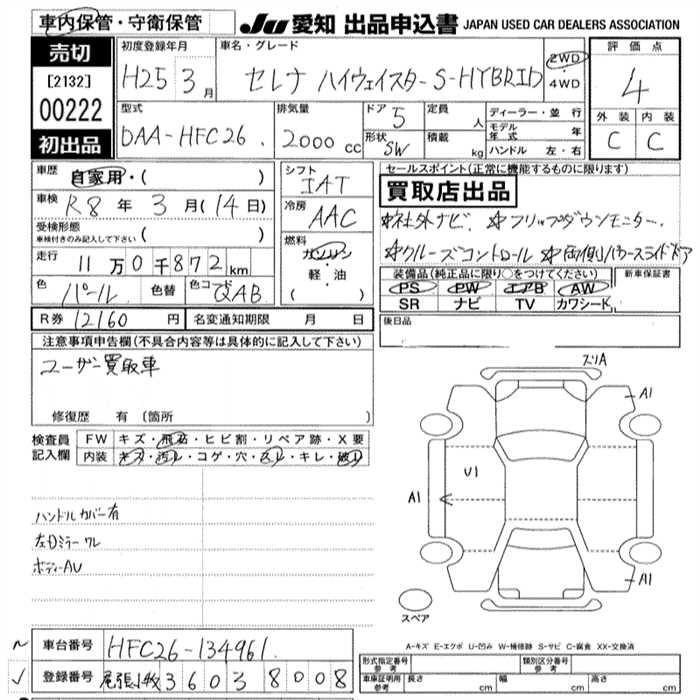 車内保管・守衛保管
JU 愛知 出品申込書 JAPAN USED CAR DEALERS ASSOCIATION
売切
[2132]
00222
初出品
初度登録年月
H25 3月
車名・グレード
セレナ ハイウェイスター S-HYBRID
2WD
4WD
評価点
4
外装 内装
C C
型式
DAA-HFC26
排気量
2000 cc
ドア 5
形状 SW
定員 人
積載 kg
ディーラー・並行
モデル年式 年
ハンドル 左・右
車歴 自家用・( )
車検 R8年 3月(14日)
受検形態
車検付きのみ記入して下さい ( )
走行 11万0千872km
色 パール 色替 色コード QAB
シフト IAT
冷房 AAC
燃料
ガソリン
軽・油
( )
セールスポイント(正常に機能するものに限ります)
買取店出品
☆社外ナビ ☆フリップダウンモニター
☆クルーズコントロール ☆両側パワースライドドア
装備品(純正品に限り○をつけてください)
PS PW エアB AW
SR ナビ TV カワシート
新車保証書
後日品
R券 12160 円 名変通知期限 月 日
注意事項申告欄(不具合内容等は具体的に記入して下さい)
ユーザー買取車
修復歴 有 〔箇所 〕
検査員記入欄
FW キズ・飛石・ヒビ割・リペア跡・X要
内装 キズ・汚レ・コゲ・穴・スレ・キレ・破レ
ハンドルカバー有
左Dミラーワレ
ボディーAU
スリA
A1
U1
A1
A1
スペア
A-キズ E-エクボ U-凹み W-補修跡 S-サビ C-腐食 XX-交換済
車台番号 HFC26-134961
登録番号 尾張小牧 3603 8008
形式指定番号 参考
類別区分番号 参考
車庫証明用 参考 長さ cm 幅 cm 高さ cm